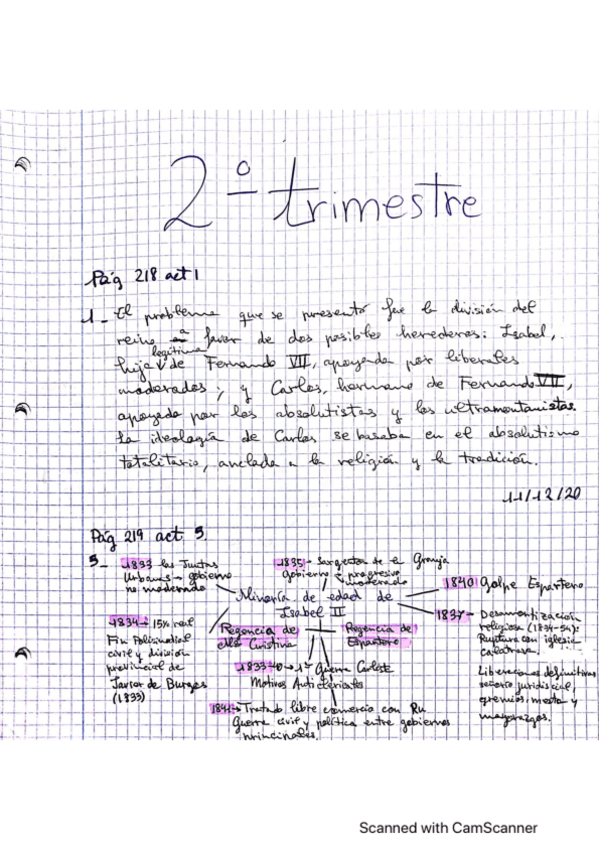 2º trimestre
Pág 218 act 1
1_ El problema que se presentó fue la división del
reino a favor de dos posibles herederos: Isabel,
hija legítima de Fernando VII, apoyada por liberales
moderados; y Carlos, hermano de Fernando VII,
apoyado por los absolutistas y los ultramontanistas.
La ideología de Carlos se basaba en el absolutismo
totalitario, anclada a la religión y la tradición.
11/12/20
Pág 219 act 5
5_ 1833 las Juntas
Urbanas → gobierno
no moderado
1835- Sargentos de la Granja
gobierno progresivo
moderado
1840 Golpe Espartero
Minoría de edad de
Isabel II
1837- Desamortización
religiosa (1834-54):
Ruptura con iglesia
1834- 15% real
Fin
civil y división
provincial de
Javier de Burgos
(1833)
Regencia de
Mª Cristina
Regencia de
Espartero
1833-40 → 1ª Guerra Carlista
Motivos Anticlericales
Liberaciones definitivas
señorío jurídiscial,
gremios, mesta y
mayorazgos.
1841- Tratado libre comercio con Ru
Guerra civil y política entre gobiernos
principales.
Scanned with CamScanner